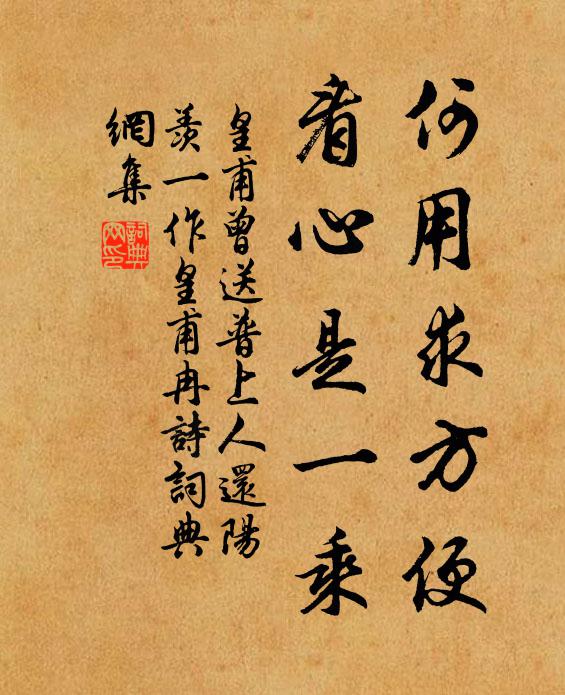 何用求方便
看心是一乘
皇甫曾送普上人還陽
羨一作皇甫冉詩詞典
網集
詞典
网印